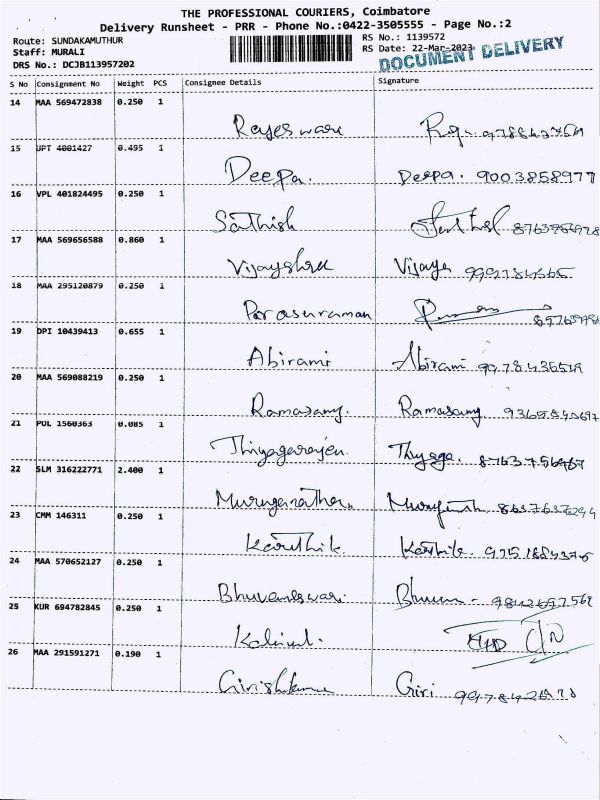 THE PROFESSIONAL COURIERS, Coimbatore
Delivery Runsheet - PRR - Phone No.:0422-3505555 - Page No.:2
Route: SUNDAKAMUTHUR RS No.: 1139572
Staff: MURALI RS Date: 22-Mar-2023
DRS No.: DCJB113957202 DOCUMENT DELIVERY
S No Consignment No Weight PCS Consignee Details Signature
14 MAA 569472838 0.250 1
Rajeswari
15 JPT 4001427 0.495 1
Deepa. Deepa. 9003858977
16 VPL 401824495 0.250 1
Sathish
17 MAA 569656588 0.860 1
Vijayshree Vijaya
18 MAA 295120879 0.250 1
Parasuraman
19 DPI 10439413 0.655 1
Abirami Abirami
20 MAA 569088219 0.250 1
Ramasamy. Ramasamy.
21 POL 1560363 0.085 1
Thiyagarajan Thyaga.
22 SLM 316222771 2.400 1
Muruganathan
23 CMM 146311 0.250 1
Karthik Karthik.
24 MAA 570652127 0.250 1
Bhuvaneswari
25 KUR 694782845 0.250 1
26 MAA 291591271 0.190 1
Girishkumar Giri